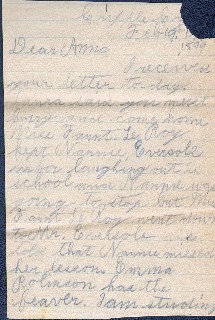 Cripple Cr
Feb
1899
Dear Anna
I received
your letter to day.
said you missed
every and come home
Miss Faunt Le Roy
kept Nannie Eversole
in for laughing out in
school and Nannie was
going to stop but Miss
Faunt Le Roy went down
to Mr. Eversole and
told that Nannie missed
her lesson. Emma
Robinson has the
feaver. I am studing